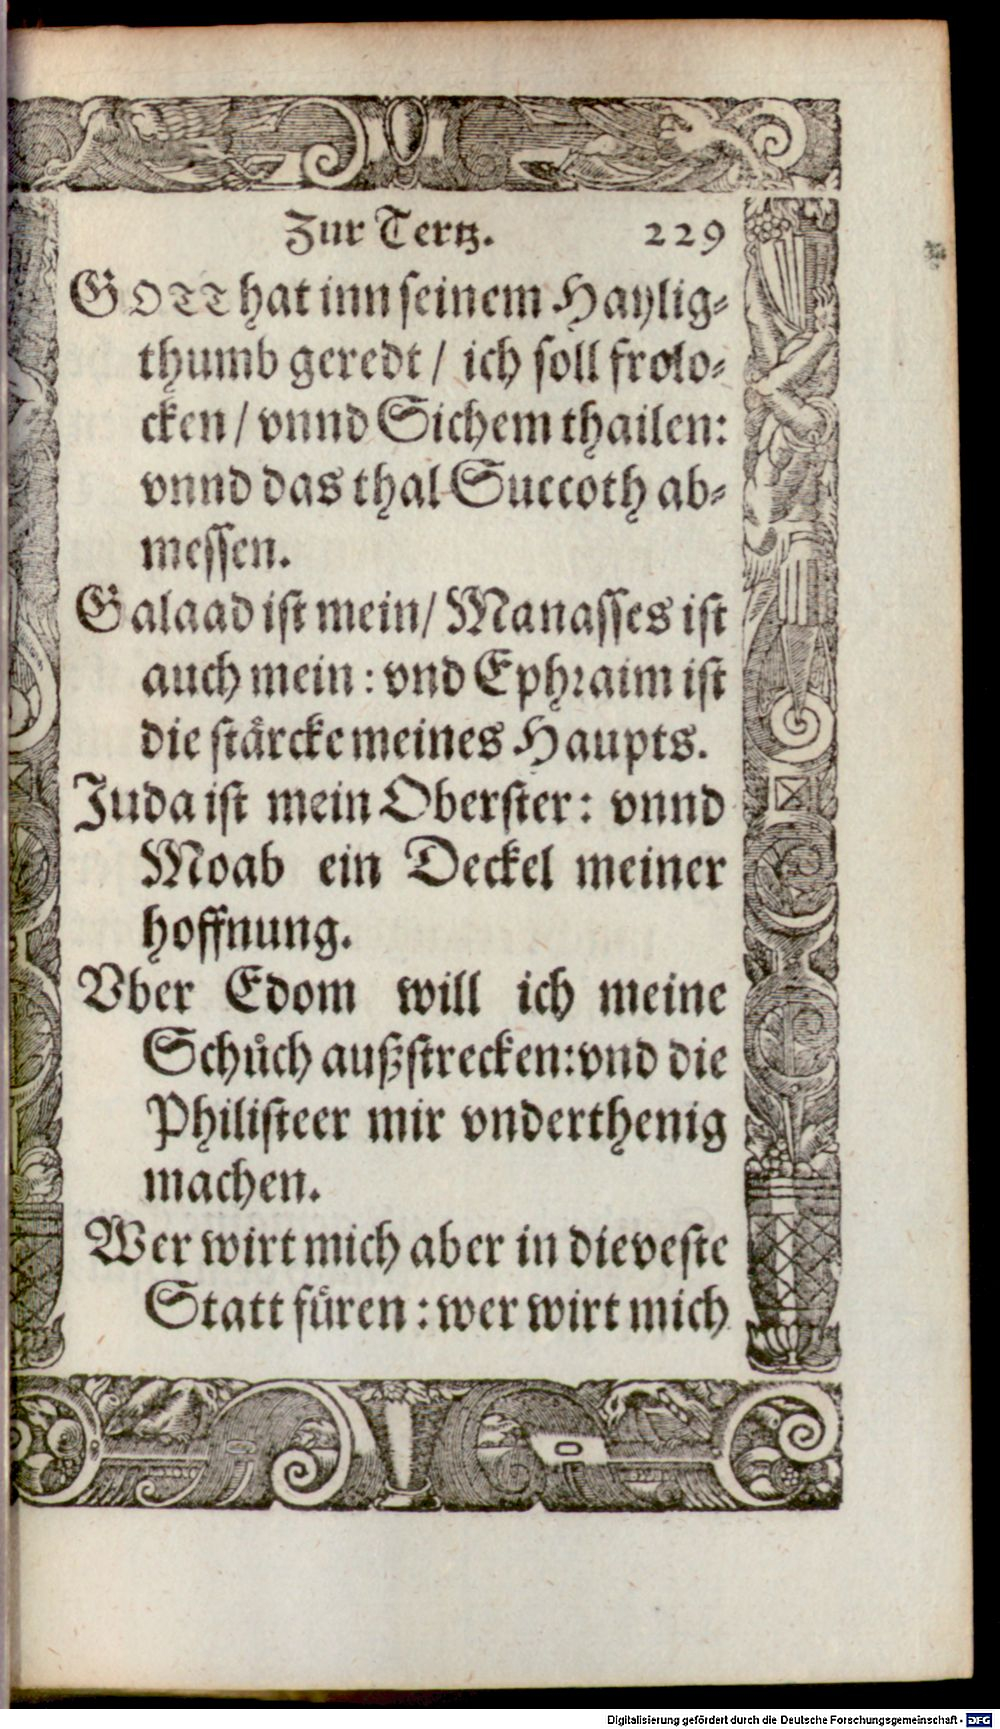 Zur Tertz. 229
GOTT hat inn seinem Haylig-
thumb geredt / ich soll frolo-
cken / vnnd Sichem thailen:
vnnd das thal Succoth ab-
messen.
Galaad ist mein / Manasses ist
auch mein : vnd Ephraim ist
die stärcke meines Haupts.
Juda ist mein Oberster : vnnd
Moab ein Deckel meiner
hoffnung.
Vber Edom will ich meine
Schůch außstrecken: vnd die
Philisteer mir vnderthenig
machen.
Wer wirt mich aber in die veste
Statt füren : wer wirt mich
Digitalisierung gefördert durch die Deutsche Forschungsgemeinschaft - DFG